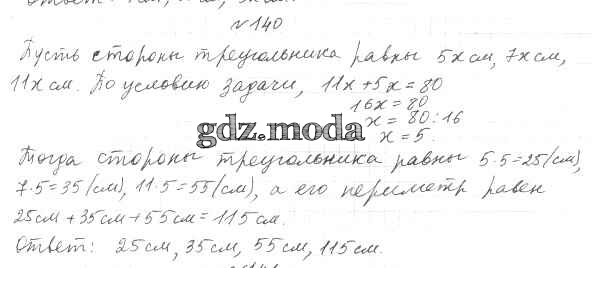 №140
Пусть стороны треугольника равны 5x см, 7x см,
11x см. По условию задачи, 11x+5x=80
16x=80
x=80:16
gdz.moda
x=5.
Тогда стороны треугольника равны 5·5=25(см),
7·5=35(см), 11·5=55(см), а его периметр равен
25см+35см+55см=115см.
Ответ: 25см, 35см, 55см, 115см.